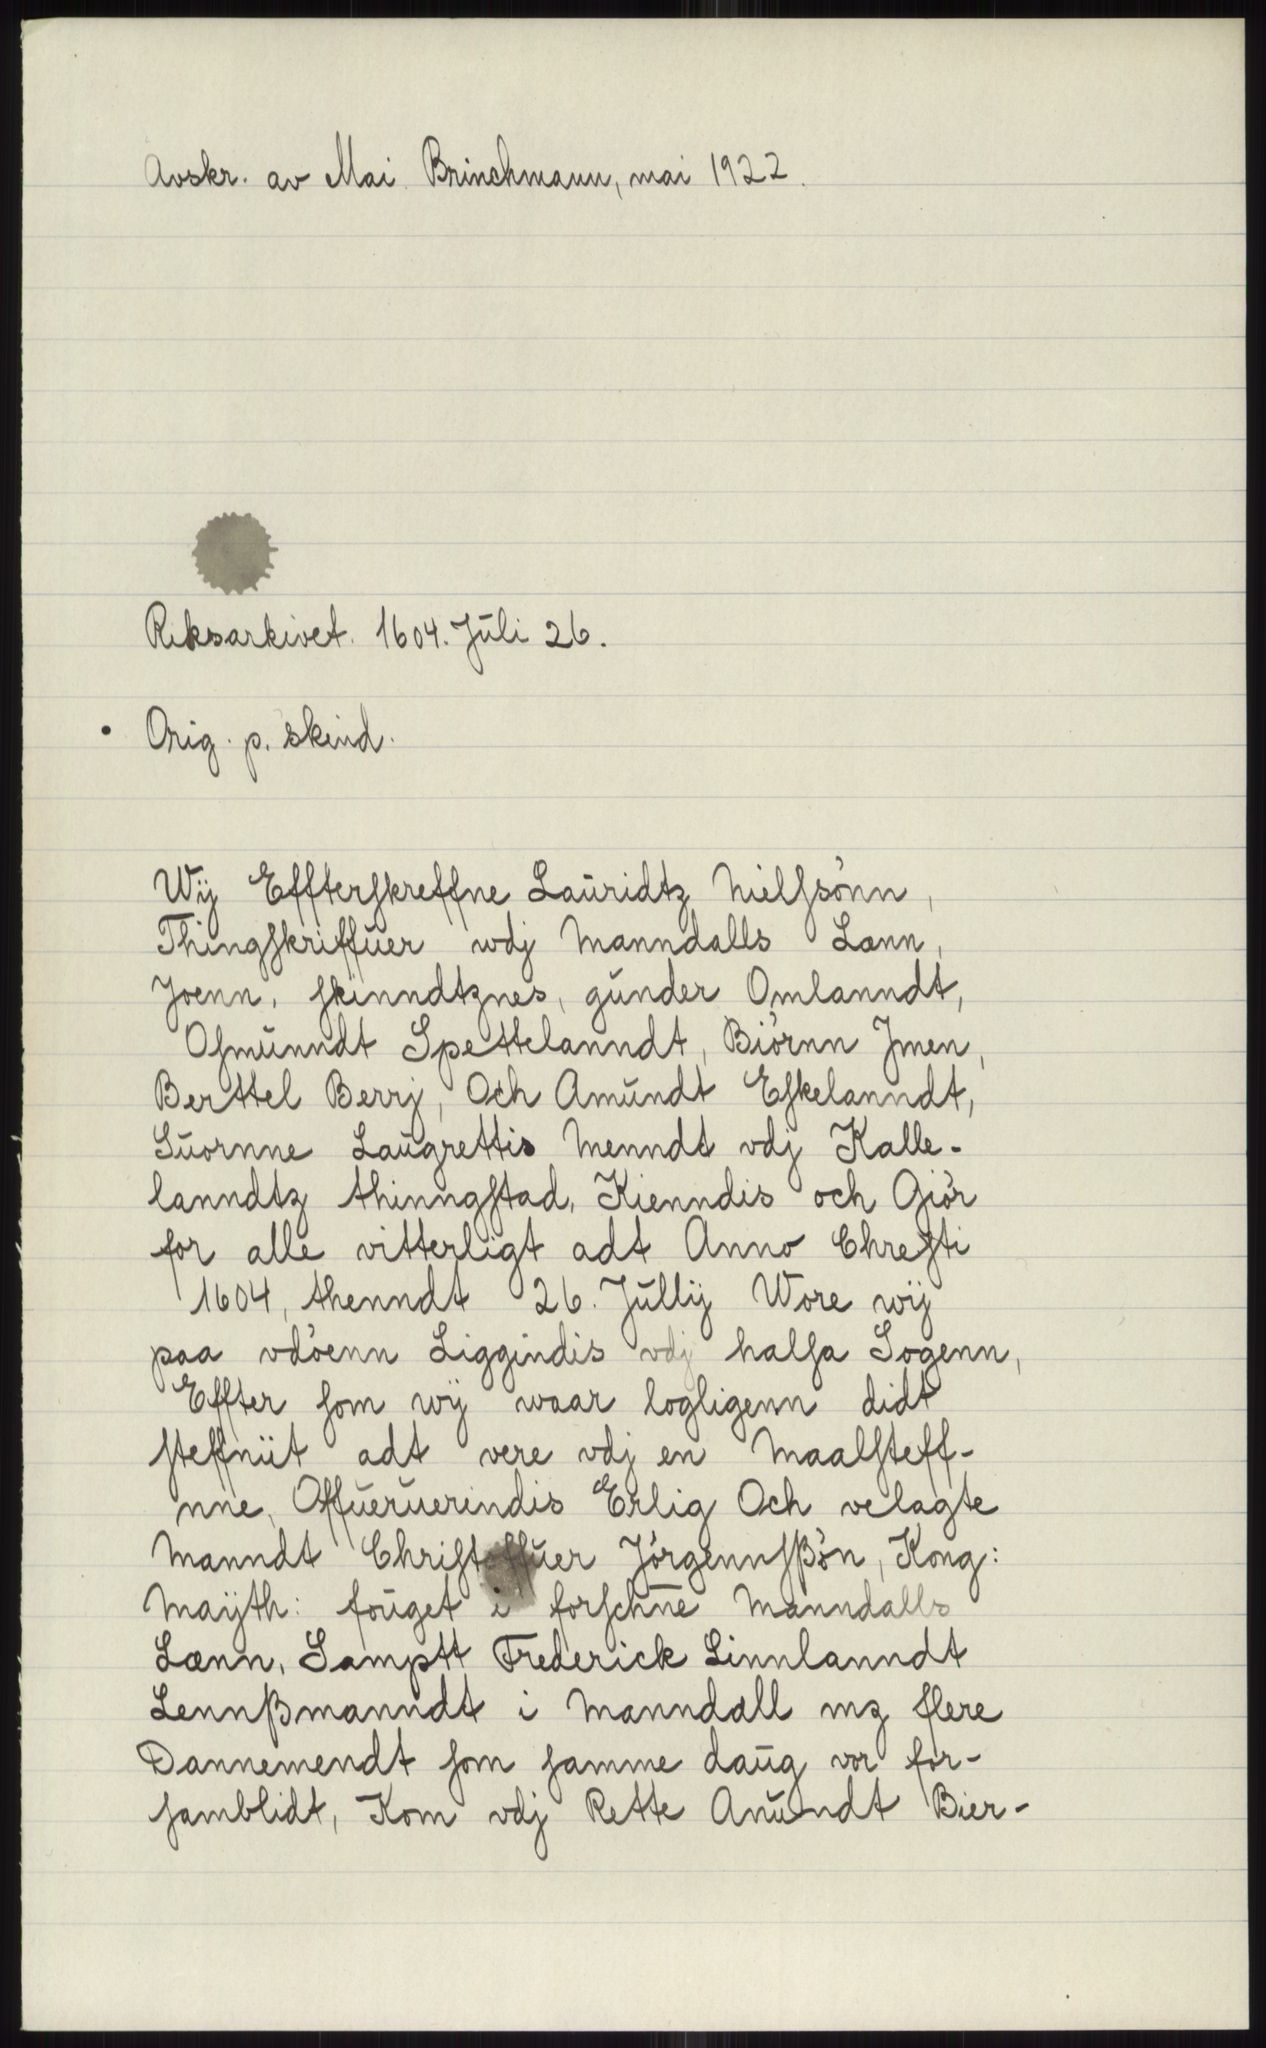 Avskr. av Mai Brinchmann, mai 1922.
Riksarkivet. 1604. Juli 26.
Orig. p. skind.
Wÿ Effterſkreffne Lauridtz Nielſsönn,
Thingſkriffuer wdj Manndalls Lænn,
Joenn, ſkinndtznes, gunder Omlanndt,
Oſmunndt Spettelanndt, Biörnn Jmen,
Berttel Berrj, Och Amundt Eſkelanndt,
Suornne Laugrettis Menndt vdj Kalle-
lanndtz thinngſtad, Kienndis och Giör
for alle vitterligt adt Anno Chreſti
1604, thenndt 26. Jullÿ Wore wÿ
paa vdöenn Liggindis vdj halſa Sogenn,
Effter ſom wÿ waar logligenn didt
ſteffnüt adt vere vdj en Maalſteff-
nne, Offueruerindis Erlig Och velagte
Manndt Chriſtoffuer Jörgennſßön, Kong:
Maÿth: fouget i forſchne Manndalls
Lænn, Samptt Frederick Linnlanndt
Lennßmanndt i Manndall mz flere
Dannemendt ſom ſamme daug vor for-
ſamblidt, Kom vdj Rette Anundt Bier-